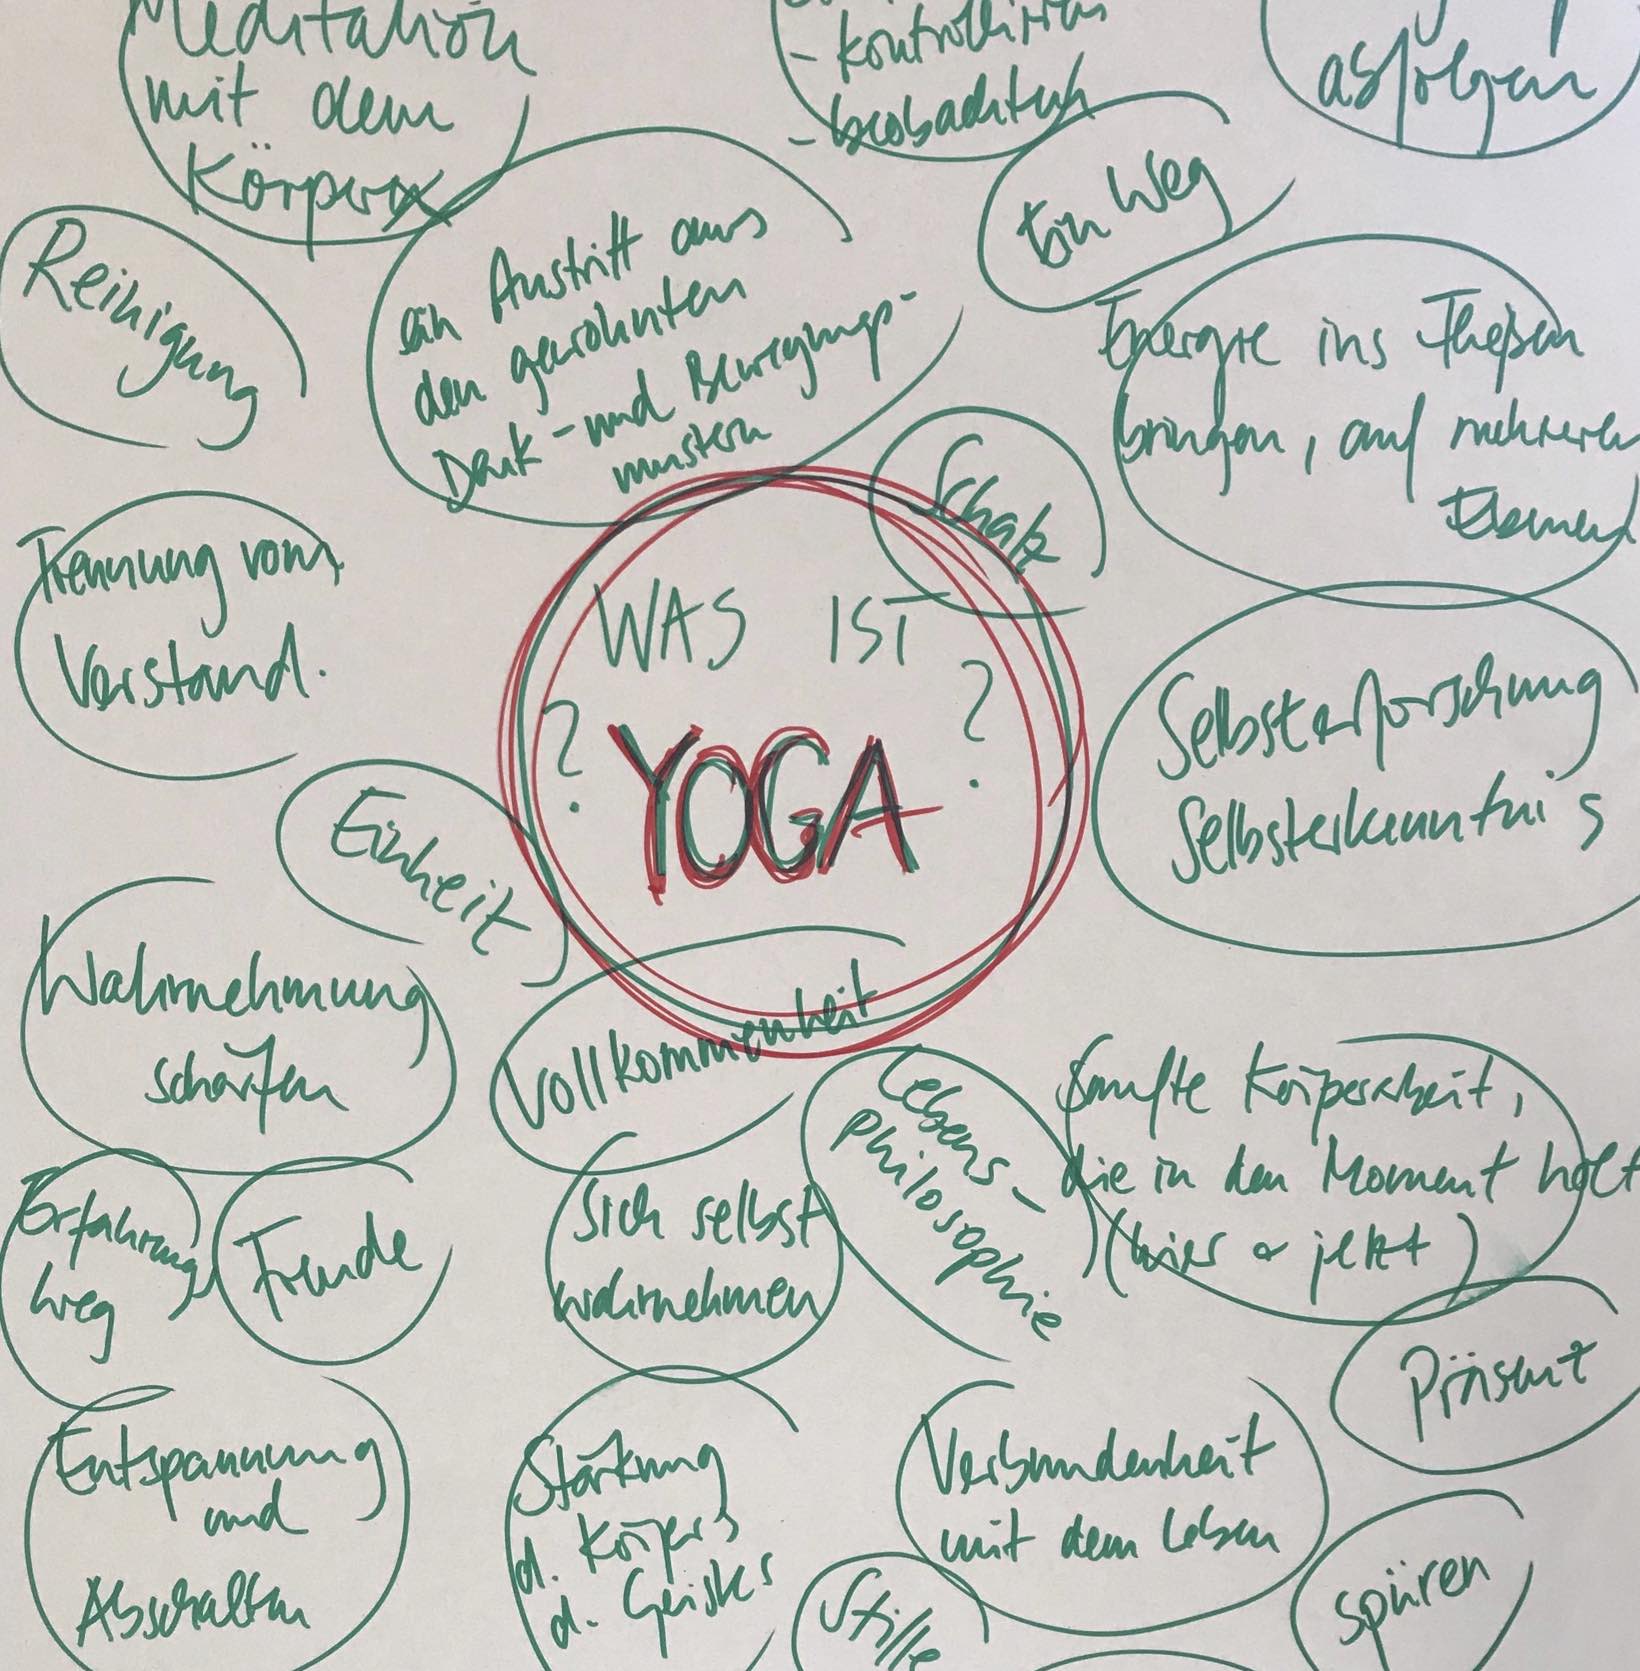 Meditation
mit dem
Körper
- kontrollieren
- beobachten
Ein Weg
Reinigung
ein Austritt aus
den gewohnten
Denk- und Bewegungs-
mustern
Energie ins Fließen
bringen, auf mehreren
Ebenen
Schatz
Trennung vom
Verstand.
WAS IST
? YOGA ?
Selbsterforschung
Selbsterkenntnis
Einheit
Wahrnehmung
schärfen
Vollkommenheit
Lebens-
philosophie
Sanfte Körperarbeit,
die in den Moment holt
(hier & jetzt)
Erfahrungs
weg
Freude
Sich selbst
wahrnehmen
Präsent
Entspannung
und
Abschalten
Stärkung
d. Körpers
d. Geistes
Verbundenheit
mit dem Leben
Stille
spüren